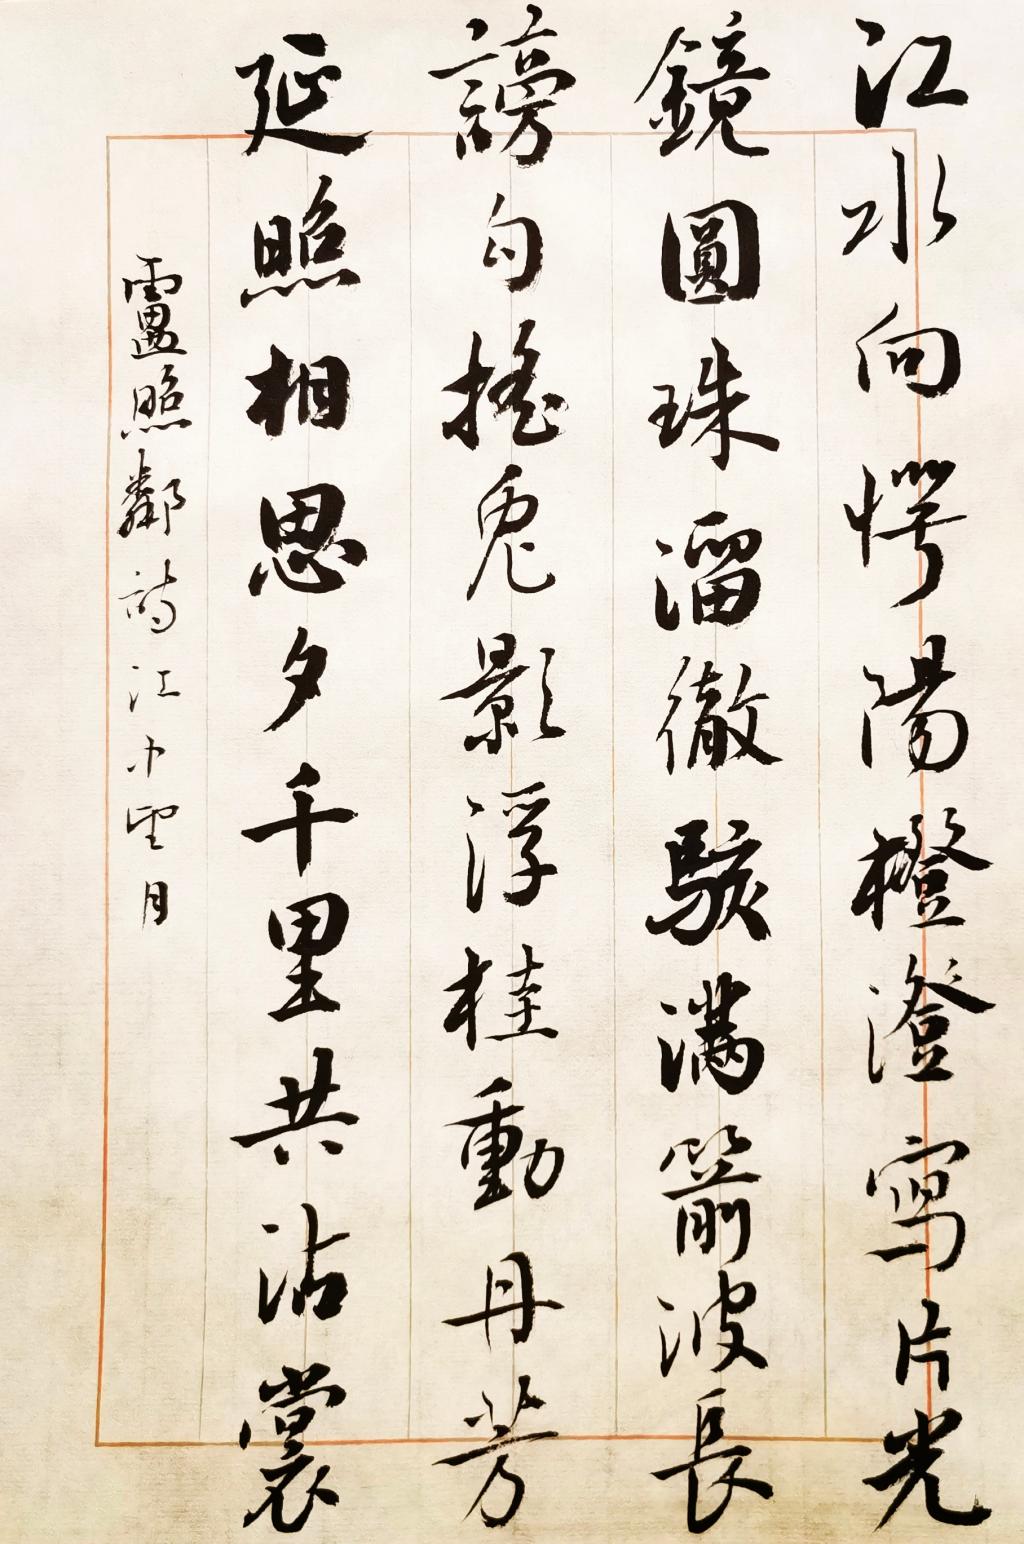 江水向愕陽橙澄寫片光
鏡圓珠溜徹駭滿箭波長
謗勾搖兔影浮桂動丹芳
延照相思夕千里共沾裳
盧照鄰詩江中望月